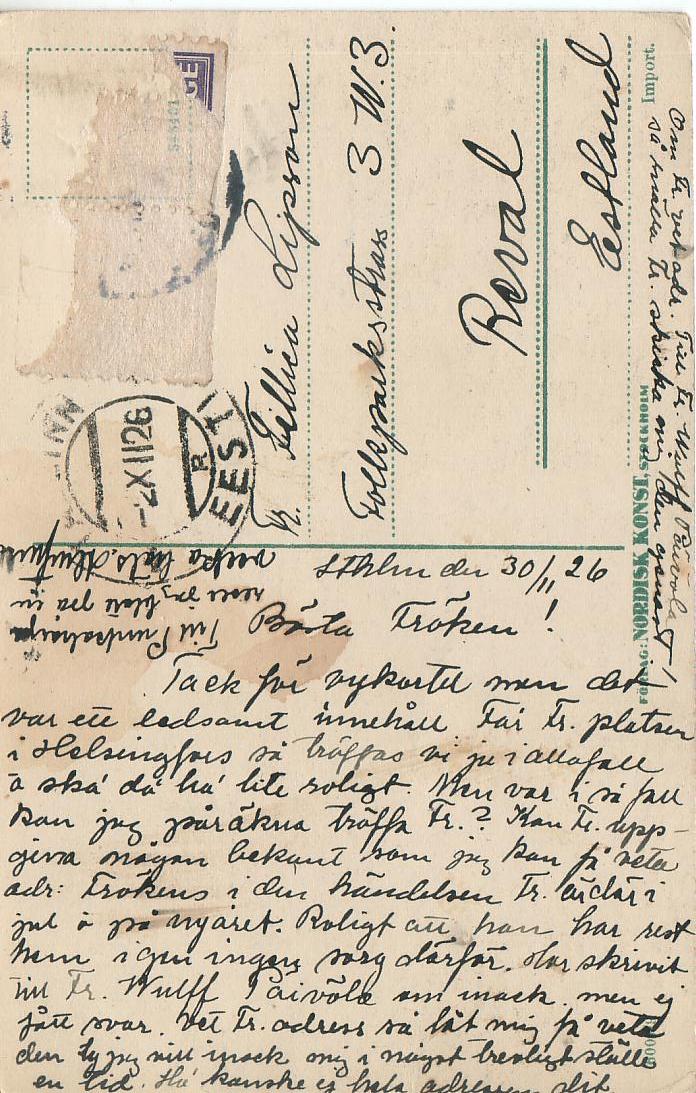 Fr. Lillica Lipson
3 W. 3.
Reval
Estland
TALLINN
-2 XII 26
EESTI
R
FÖRLAG: NORDISK KONST, STOCKHOLM
Import.
Sthlm den 30/11 26
Bästa Fröken!
Tack för vykortet men det
var ett ledsamt innehåll. Får Fr. platsen
i Helsingfors så träffas vi ju i allafall
å ska då ha lite roligt. Men var i så fall
kan jag påräkna träffa Fr.? Kan Fr. upp-
giva någon bekant som jag kan få veta
adr: Frökens i den händelsen Fr. är där i
jul å på nyåret. Roligt att han har rest
hem igen ingen sorg därför. Har skrivit
till Fr. Wulff Päivölä om inack. men ej
fått svar. Vet Fr. adress så låt mig få veta
den ty jag vill inack. mig i något trevligt ställe
en tid. Ha kanske ej hela adressen dit
Om Fr. vet adr. Till Fr. Wulff Päivölä
så snälla Fr. skicka mig den genast!